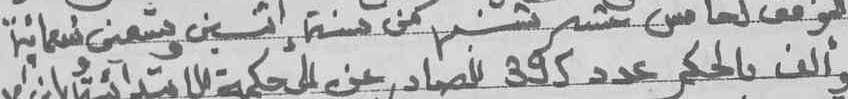 الخامس عشر شتنبر من سنة اثنين وتسعين تسعمائة
وألف بالحكم عدد 395 الصادر عن المحكمة الابتدائية